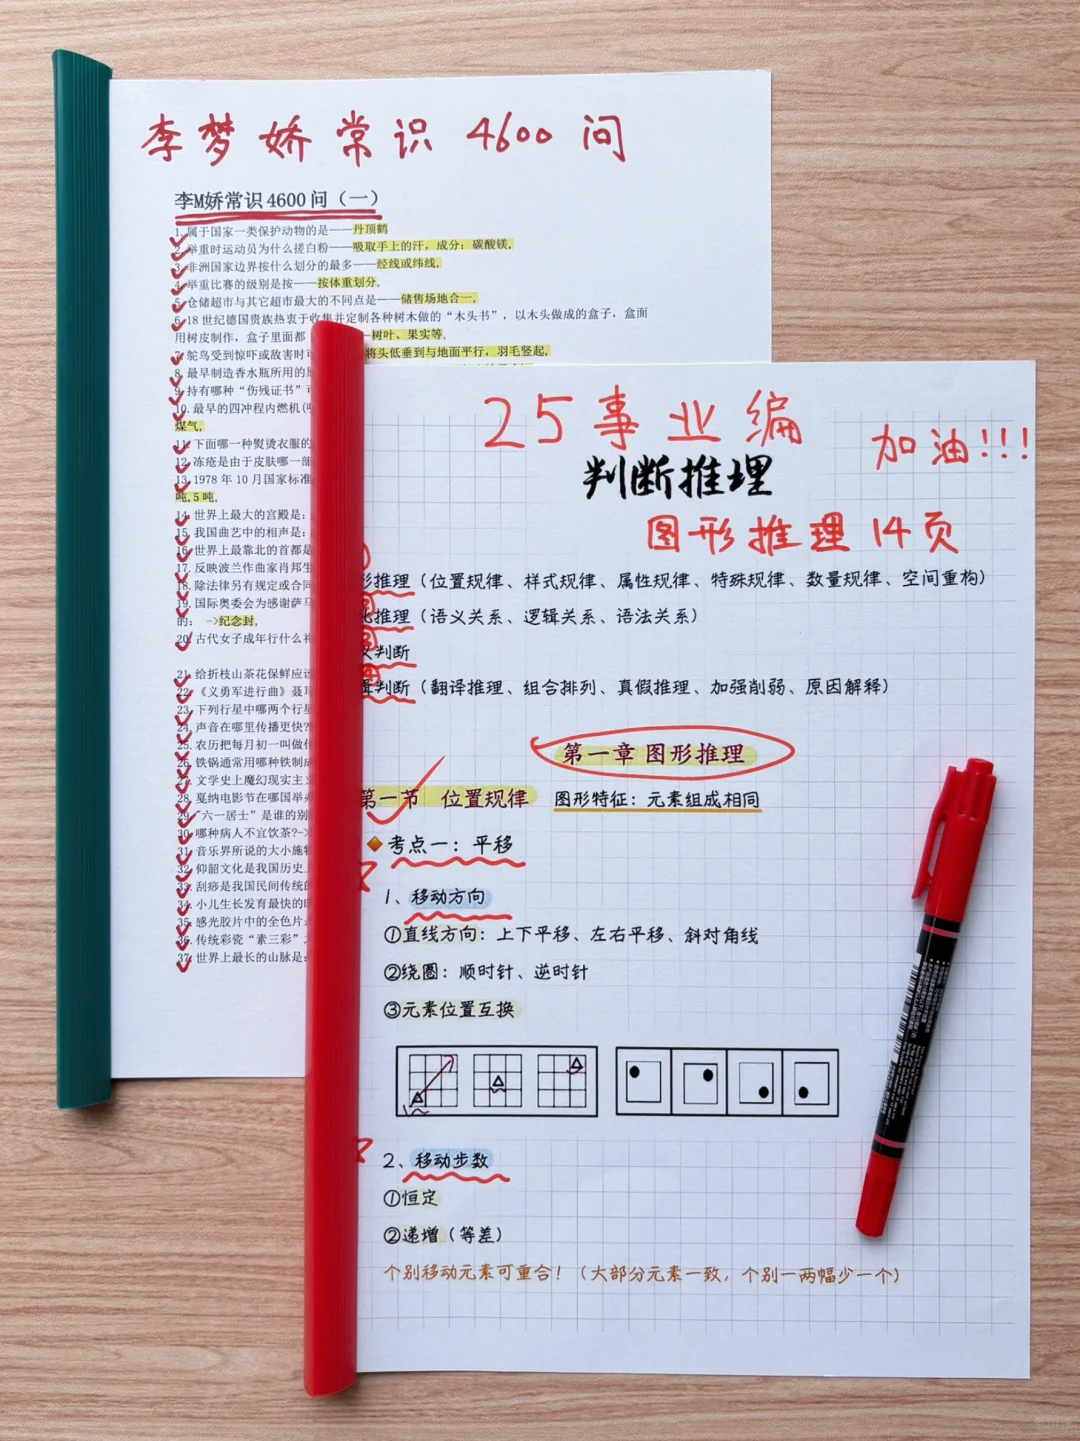 李梦娇常识 4600 问
李M娇常识 4600 问（一）
1.属于国家一类保护动物的是——丹顶鹤
2.举重时运动员为什么搓白粉——吸取手上的汗，成分：碳酸镁,
3.非洲国家边界按什么划分的最多——经线或纬线,
4.举重比赛的级别是按——按体重划分,
5.仓储超市与其它超市最大的不同点是——储售场地合一,
6.18 世纪德国贵族热衷于收集并定制各种树木做的“木头书”，以木头做成的盒子，盒面
用树皮制作，盒子里面都 —树叶、果实等,
7.鸵鸟受到惊吓或敌害时可 将头低垂到与地面平行，羽毛竖起,
8.最早制造香水瓶所用的
9.持有哪种“伤残证书”
10.最早的四冲程内燃机(
煤气,
11.下面哪一种熨烫衣服的
12.冻疮是由于皮肤哪一部
13.1978 年 10 月国家标准
吨,5 吨,
14.世界上最大的宫殿是:
15.我国曲艺中的相声是:
16.世界上最靠北的首都是
17.反映波兰作曲家肖邦生
18.除法律另有规定或合同
19.国际奥委会为感谢萨马
的： ->纪念封,
20.古代女子成年行什么礼
21.给折枝山茶花保鲜应该
22.《义勇军进行曲》聂耳
23.下列行星中哪两个行星
24.声音在哪里传播更快?
25.农历把每月初一叫做什
26.铁锅通常用哪种铁制成
27.文学史上魔幻现实主义
28.戛纳电影节在哪国举办
29."六一居士”是谁的别
30.哪种病人不宜饮茶?->
31.音乐界所说的大小施
32.仰韶文化是我国历史上
33.刮痧是我国民间传统的
34.小儿生长发育最快的
35.感光胶片中的全色片
36.传统彩瓷“素三彩”
37.世界上最长的山脉是:
25事业编
加油!!!
判断推理
图形推理 14页
形推理（位置规律、样式规律、属性规律、特殊规律、数量规律、空间重构）
推理（语义关系、逻辑关系、语法关系）
义判断
判断（翻译推理、组合排列、真假推理、加强削弱、原因解释）
第一章 图形推理
第一节 位置规律 图形特征：元素组成相同
考点一：平移
1、移动方向
①直线方向：上下平移、左右平移、斜对角线
②绕圈：顺时针、逆时针
③元素位置互换
2、移动步数
①恒定
②递增（等差）
个别移动元素可重合！（大部分元素一致，个别一两幅少一个）